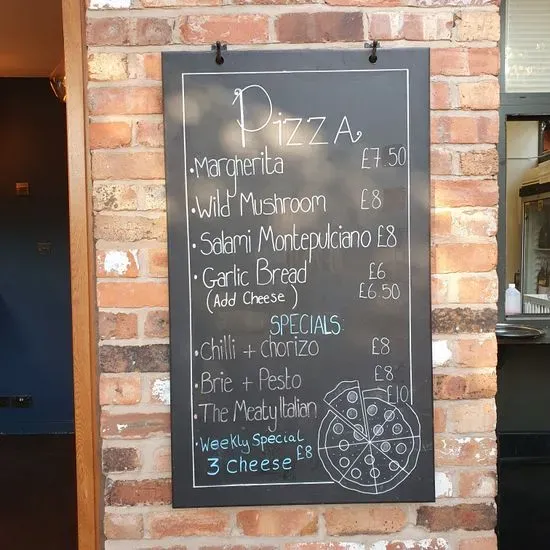 Pizza
• Margherita £7.50
• Wild Mushroom £8
• Salami Montepulciano £8
• Garlic Bread £6
(Add Cheese) £6.50
SPECIALS:
• Chilli + chorizo £8
• Brie + Pesto £8
• The Meaty Italian £10
• Weekly Special
3 Cheese £8